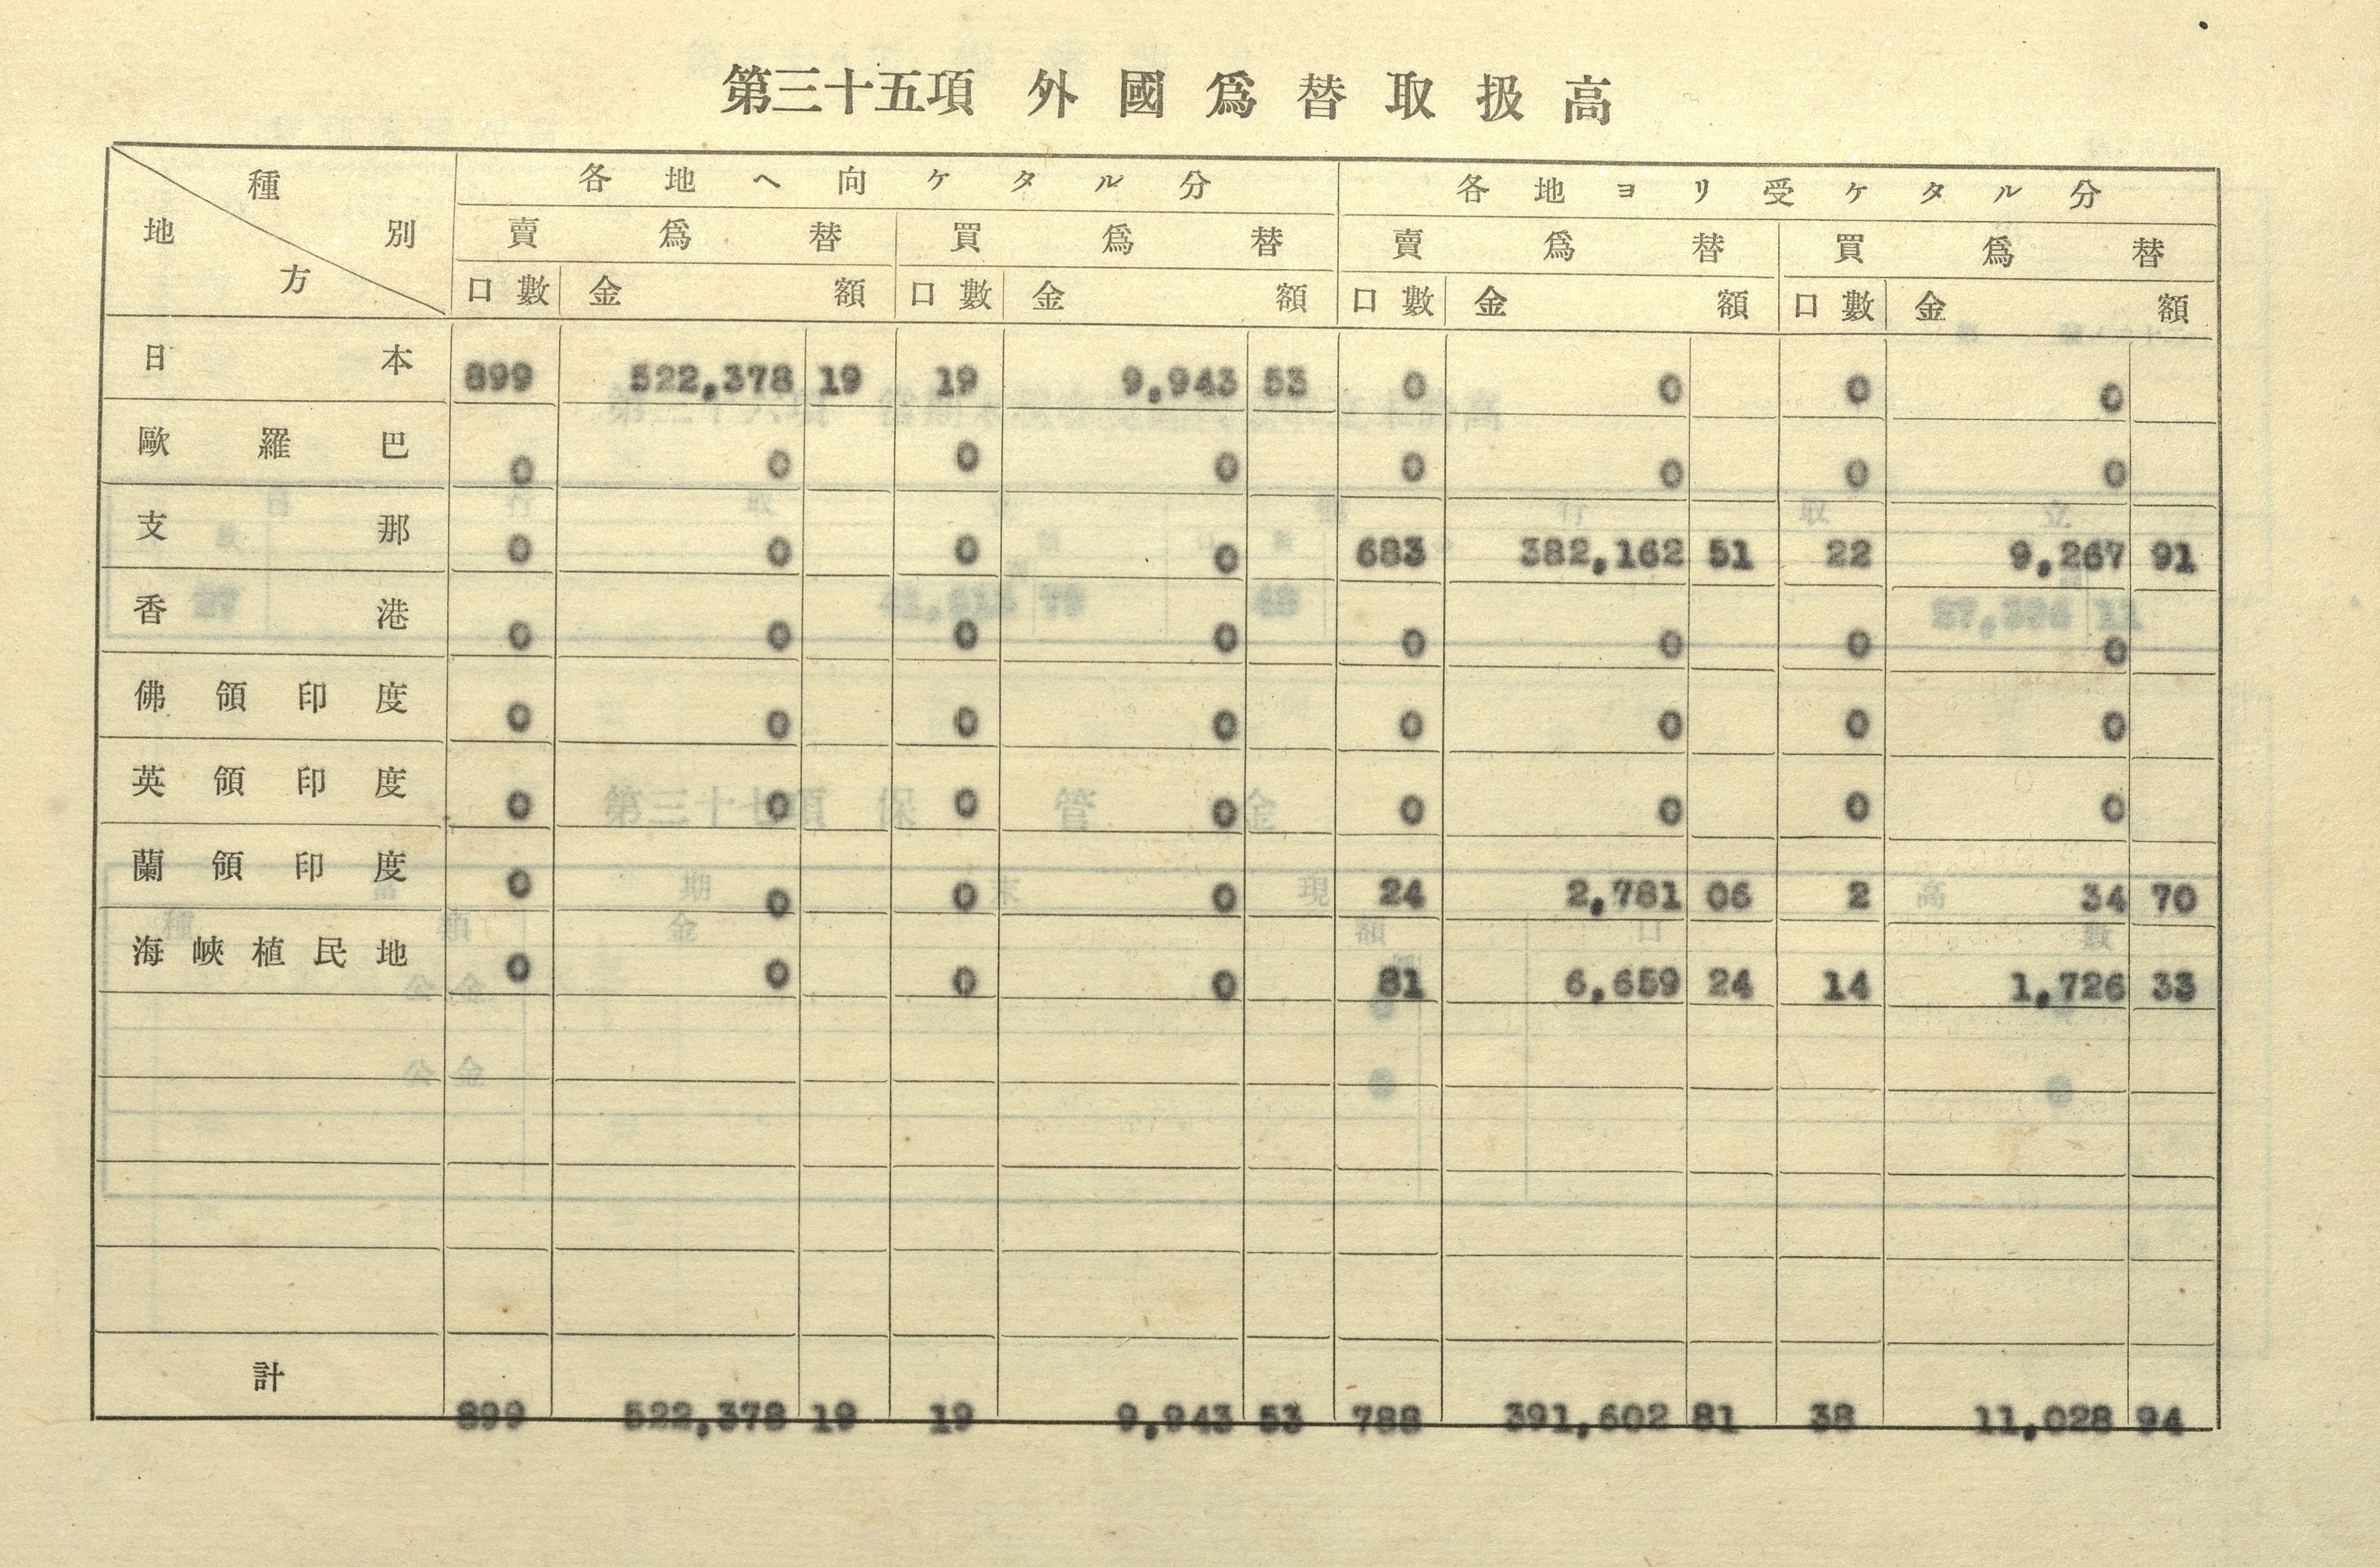 第三十五項 外國爲替取扱高
種別 地方 各地ヘ向ケタル分 各地ヨリ受ケタル分
賣爲替 買爲替 賣爲替 買爲替
口數 金額 口數 金額 口數 金額 口數 金額
日本 899 522,378 19 19 9,943 53 0 0 0 0
歐羅巴 0 0 0 0 0 0 0 0
支那 0 0 0 0 683 382,162 51 22 9,267 91
香港 0 0 0 0 0 0 0 0
佛領印度 0 0 0 0 0 0 0 0
英領印度 0 0 0 0 0 0 0 0
蘭領印度 0 0 0 0 24 2,781 06 2 34 70
海峽植民地 0 0 0 0 81 6,659 24 14 1,726 33
計 899 522,378 19 19 9,943 53 788 391,602 81 38 11,028 94